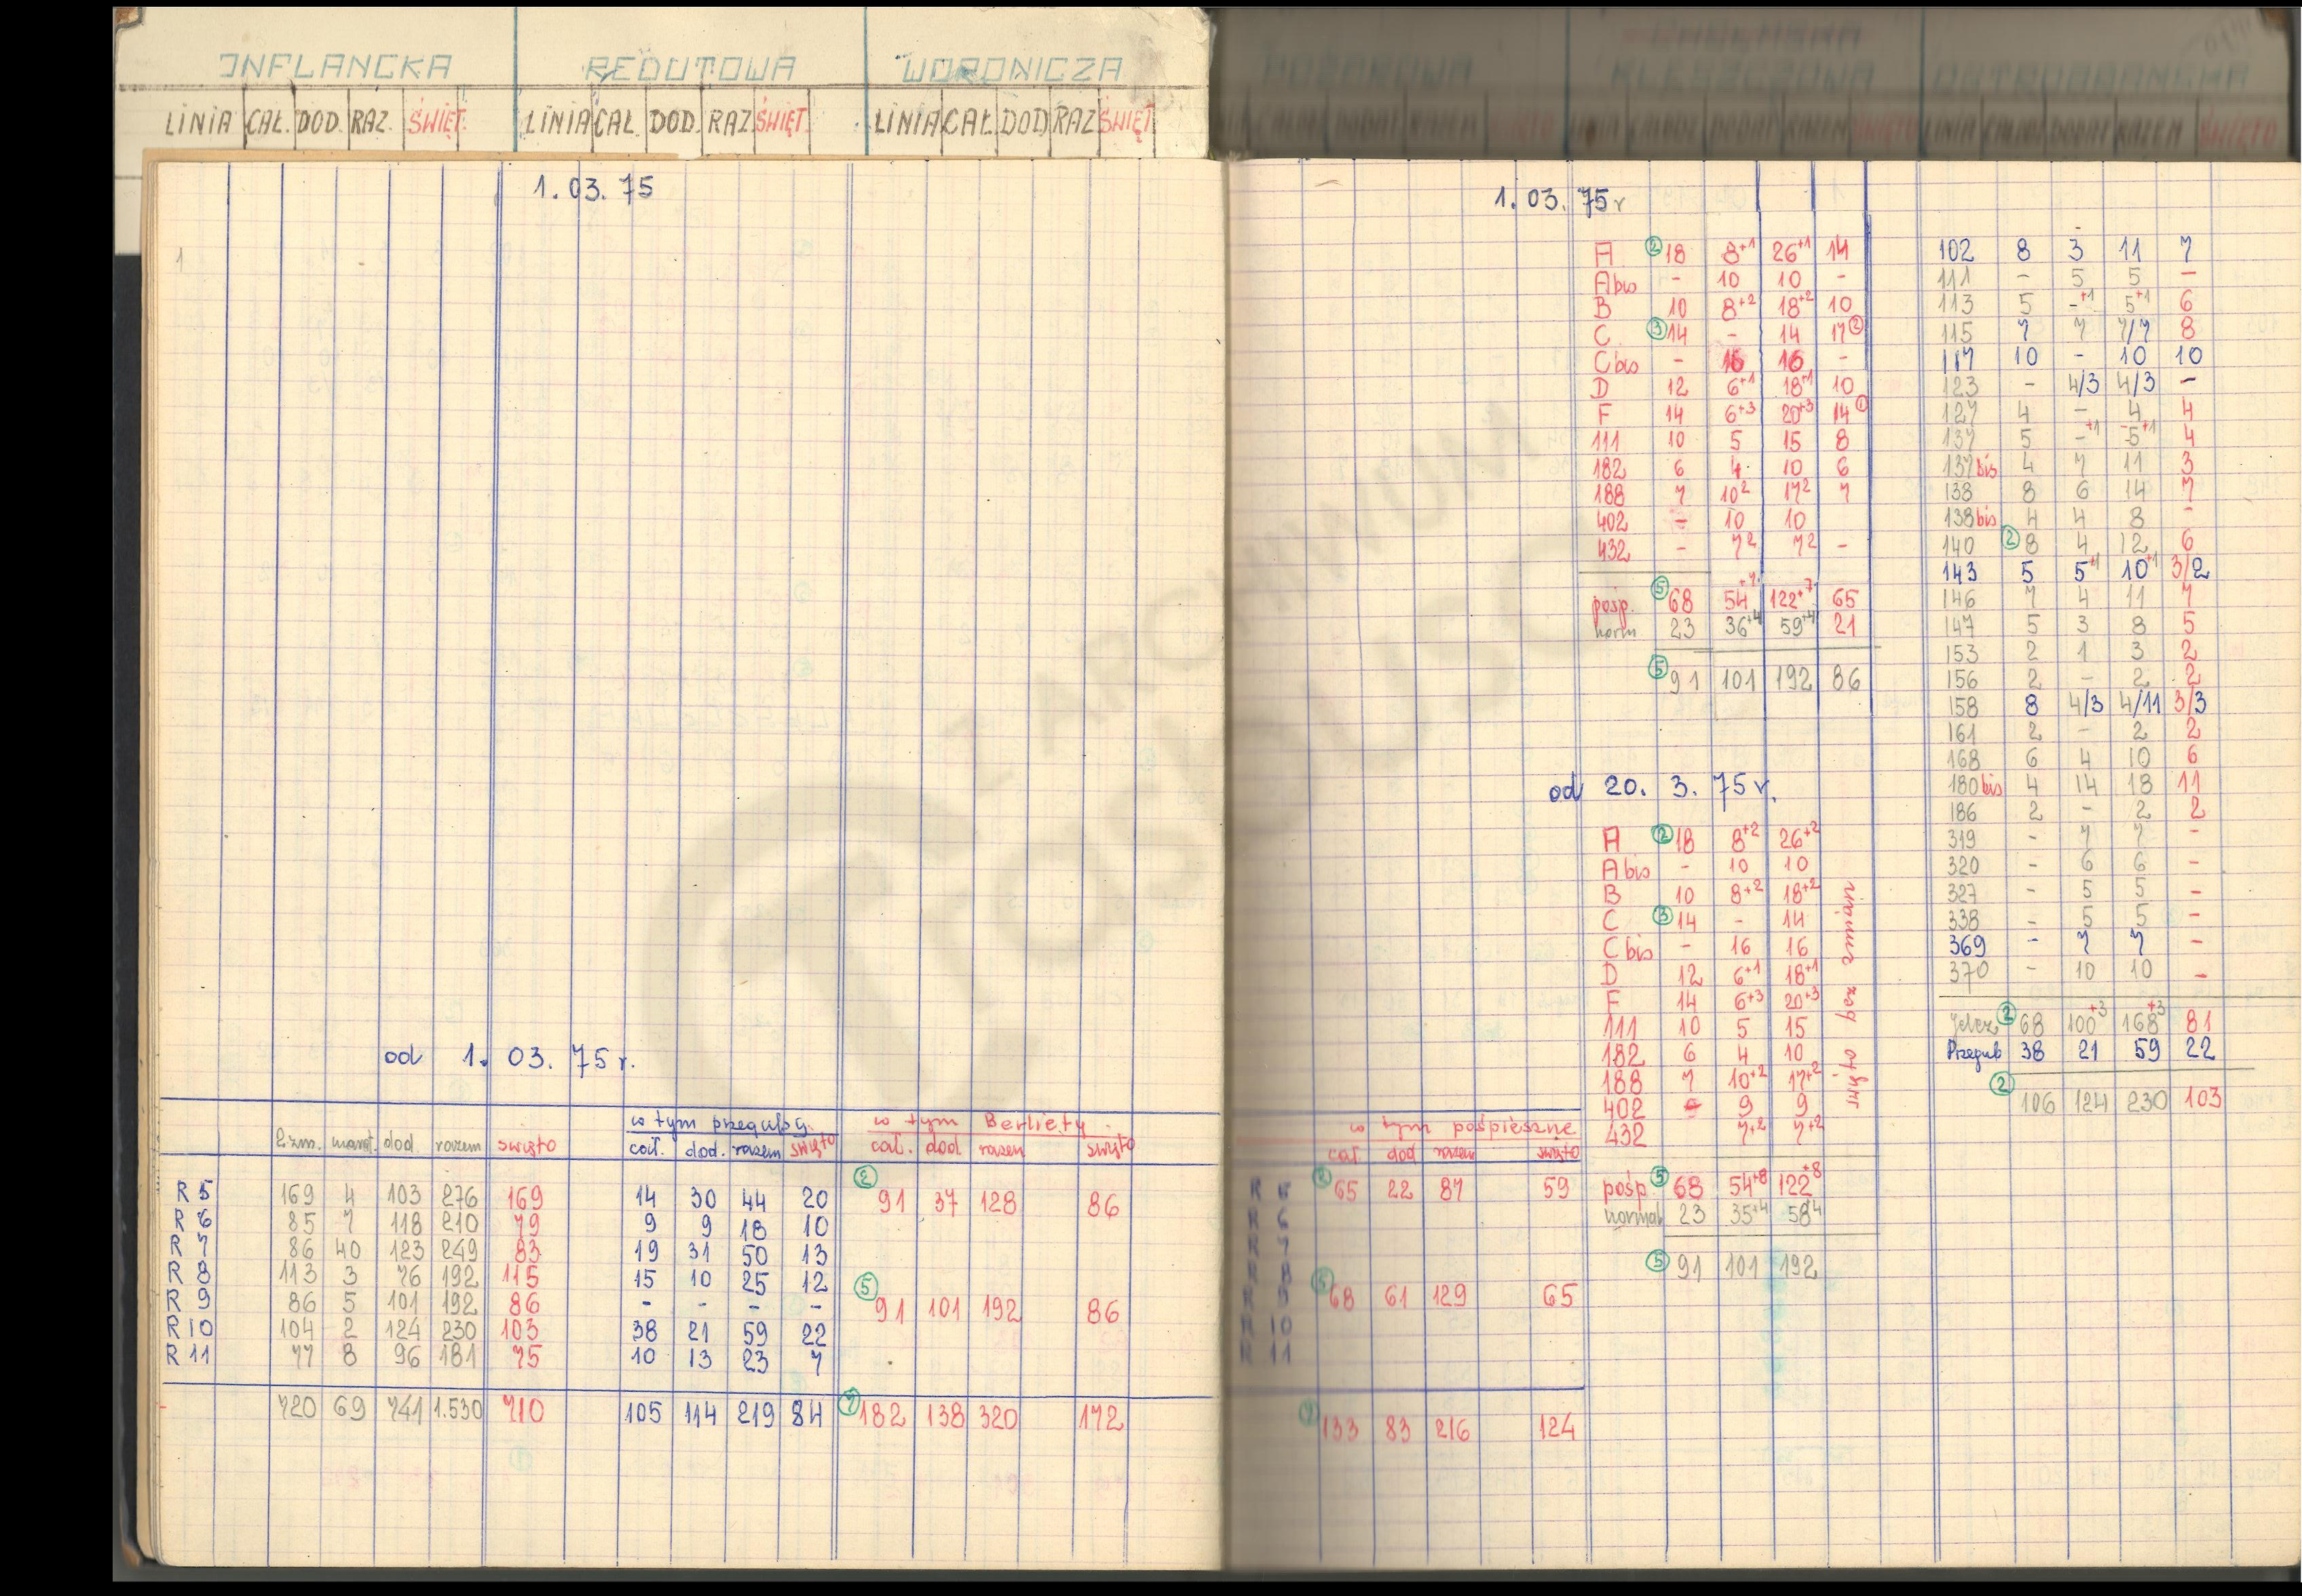 INFLANCKA REDUTOWA WORONICZA
LINIA CAŁ. DOD. RAZ. ŚWIĘT. LINIA CAŁ. DOD. RAZ ŚWIĘT. LINIA CAŁ. DOD RAZ ŚWIĘT
1.03.75
od 1. 03. 75 r.
w tym przegubg. w tym Berliety
2 zm. marsz. dod. razem święto cał. dod. razem święto cał. dod. razem święto
R 5 169 4 103 276 169 14 30 44 20 ② 91 37 128 86
R 6 85 7 118 210 79 9 9 18 10
R 7 86 40 123 249 83 19 31 50 13
R 8 113 3 76 192 115 15 10 25 12
R 9 86 5 101 192 86 - - - - ⑤ 91 101 192 86
R 10 104 2 124 230 103 38 21 59 22
R 11 77 8 96 181 75 10 13 23 7
720 69 741 1.530 710 105 114 219 84 ⑦ 182 138 320 172
OSTROBRAMSKA
1. 03. 75 r
A ② 18 8+1 26+1 14
A bis - 10 10 -
B 10 8+2 18+2 10
C ③ 14 - 14 17 ②
C bis - 16 16 -
D 12 6+1 18+1 10
F 14 6+3 20+3 14 ①
111 10 5 15 8
182 6 4 10 6
188 7 10² 17² 7
402 - 10 10
432 - 7² 7² -
pośp. ⑤ 68 54+7 122+7 65
norm 23 36+4 59+4 21
⑤ 91 101 192 86
od 20. 3. 75 r.
A ② 18 8+2 26+2
A bis - 10 10
B 10 8+2 18+2
C ③ 14 - 14
C bis - 16 16
D 12 6+1 18+1
F 14 6+3 20+3
111 10 5 15
182 6 4 10
188 7 10+2 17+2
402 9 9
432 7+2 7+2
święto bez zmian
pośp. ⑤ 68 54+8 122+8
normal 23 35+4 58 4
⑤ 91 101 192
w tym pośpieszne
cał. dod razem święto
R 5 ② 65 22 87 59
R 6
R 7
R 8
R 9 ⑤ 68 61 129 65
R 10
R 11
⑦ 133 83 216 124
102 8 3 11 7
111 - 5 5 -
113 5 -+1 5+1 6
115 7 7 7/7 8
117 10 - 10 10
123 - 4/3 4/3 -
127 4 - 4 4
137 5 -+1 5+1 4
137 bis 4 7 11 3
138 8 6 14 7
138 bis 4 4 8 -
140 ② 8 4 12 6
143 5 5+1 10+1 3/2
146 7 4 11 7
147 5 3 8 5
153 2 1 3 2
156 2 - 2 2
158 8 4/3 4/11 3/3
161 2 - 2 2
168 6 4 10 6
180 bis 4 14 18 11
186 2 - 2 2
319 - 7 7 -
320 - 6 6 -
327 - 5 5 -
338 - 5 5 -
369 - 7 7 -
370 - 10 10 -
Jelcz ② 68 100+3 168+3 81
Przegub 38 21 59 22
② 106 124 230 103